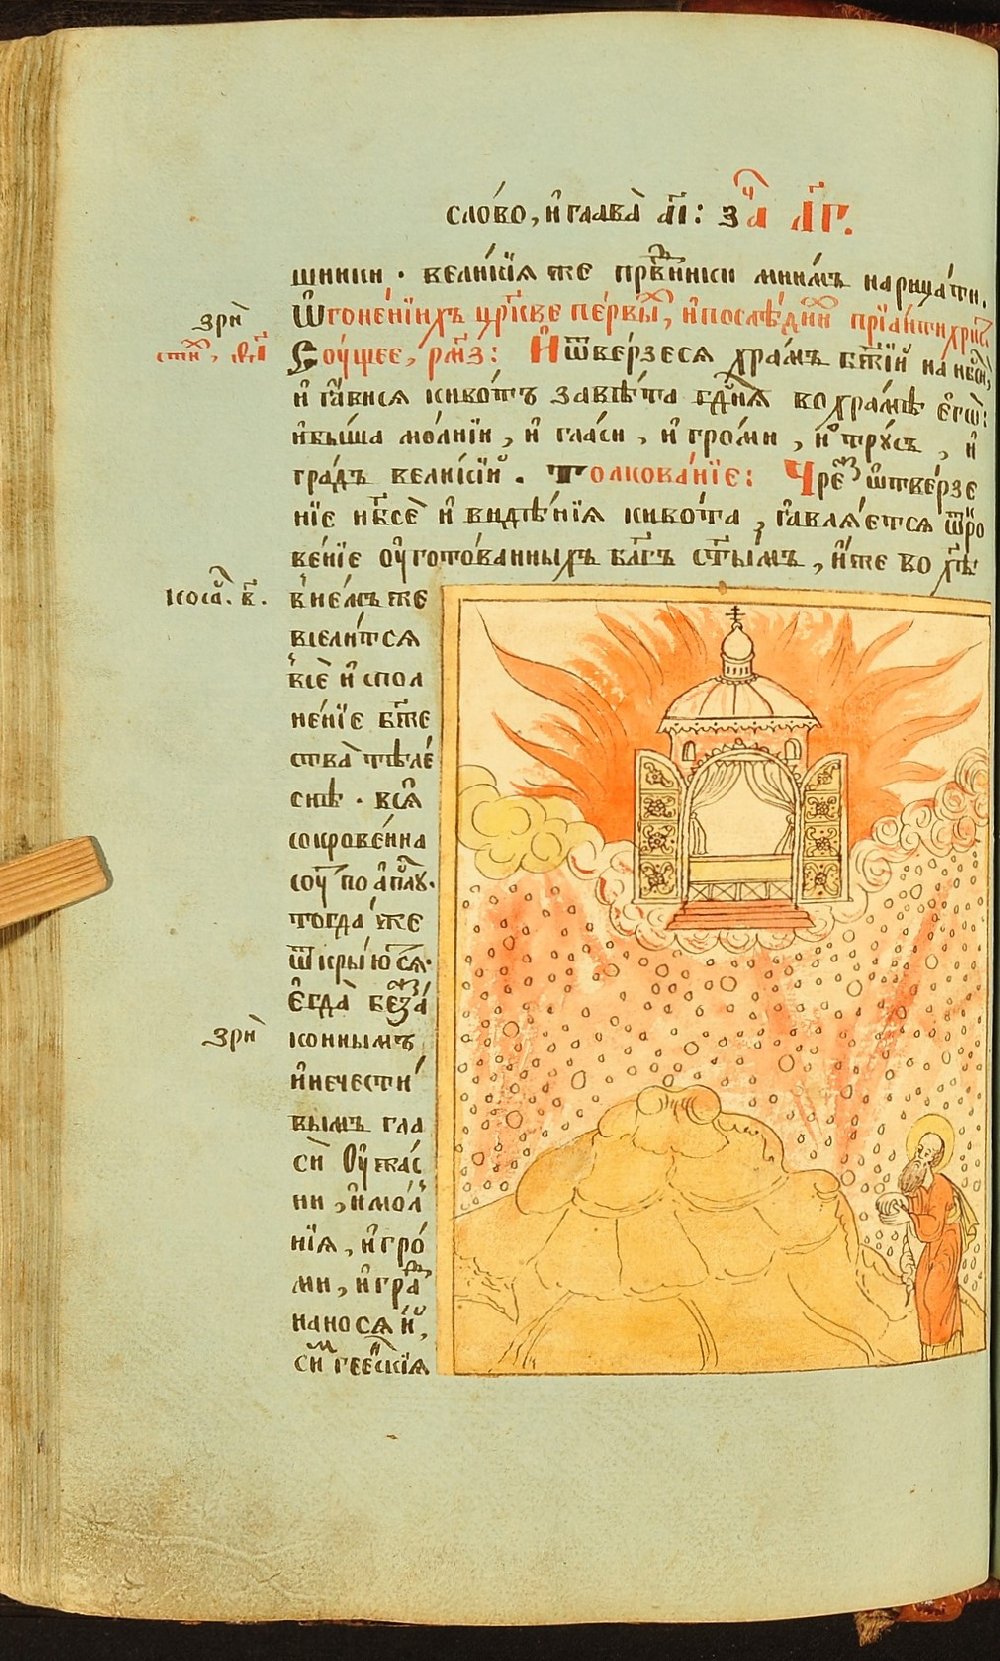 сло́во, и҆ глава̀ а҃і: за҄ч л҃г.
шники · вели́кїѧ же пра́вⷣники мни́мъ нарица́ти.
зрѝ
Ѡ҆ гоне́нїихъ цр҃кве пе́рвыⷯ, и҆ послѣ́дниⷯ прїа́нти хрⷭ҇т
стиⷯ, ѳ҃і
Соу́щее, рм҃з: И҆ ѿве́рзесѧ хра́мъ бж҃їй на нб҃си,
и҆ ꙗ҆ви́сѧ киво́тъ завѣ́та гдⷭ҇нѧ во хра́мѣ є҆гѡ̀:
и҆ бы́ша мо́лнїи, и҆ гла́си, и҆ гро́ми, и҆ трꙋ́съ, и҆
гра́дъ вели́кїй. Толкова́нїе: Чреⷥ ѿтве́рзе
нїе нб҃сѐ и҆ ви́дѣнїѧ киво́та, ꙗ҆влѧ́етсѧ ѿкро
ве́нїе оу҆гото́ванныхъ бл҃гъ ст҃ы́мъ, и҆́же во хрⷭ҇тѣ̀
колоⷭ҇. в҃.
в̾ не́мъ же
всели́тсѧ
всѐ и҆спол
не́нїе бж҃е
ства̀ тѣле́
снѣ · всѧ̑
сокрове́нна
соуⷮ по а҆пⷭ҇лꙋ.
тогда́ же
ѿкры́юⷮсѧ.
є҆гда̀ беⷥза́
зрѝ
коннымъ
и҆ нечести́
вымъ гла
сѝ оу҆жа́с
ни, и҆ мо́л
нїѧ, и҆ гро́
ми, и҆ граⷣ
наносѧ́й,
сиⷨ геⷭ҇нскїѧ